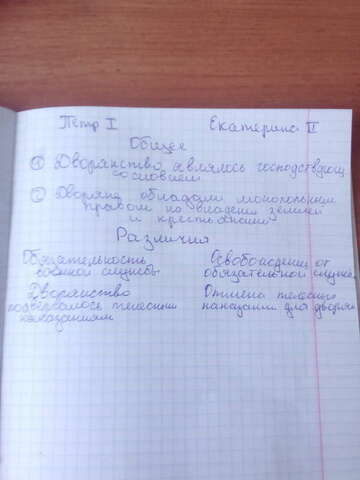 Петр I Екатерина II
Общее
① Дворянство являлось господствующ.
сословием
② Дворяне обладали монопольным
правом на владения землей
и крестьянами
Различия
Обязательность Освобождении от
военной службы обязательной службы
Дворянство Отмена телесных
подвергалось телесным наказаний для дворян
наказаниям